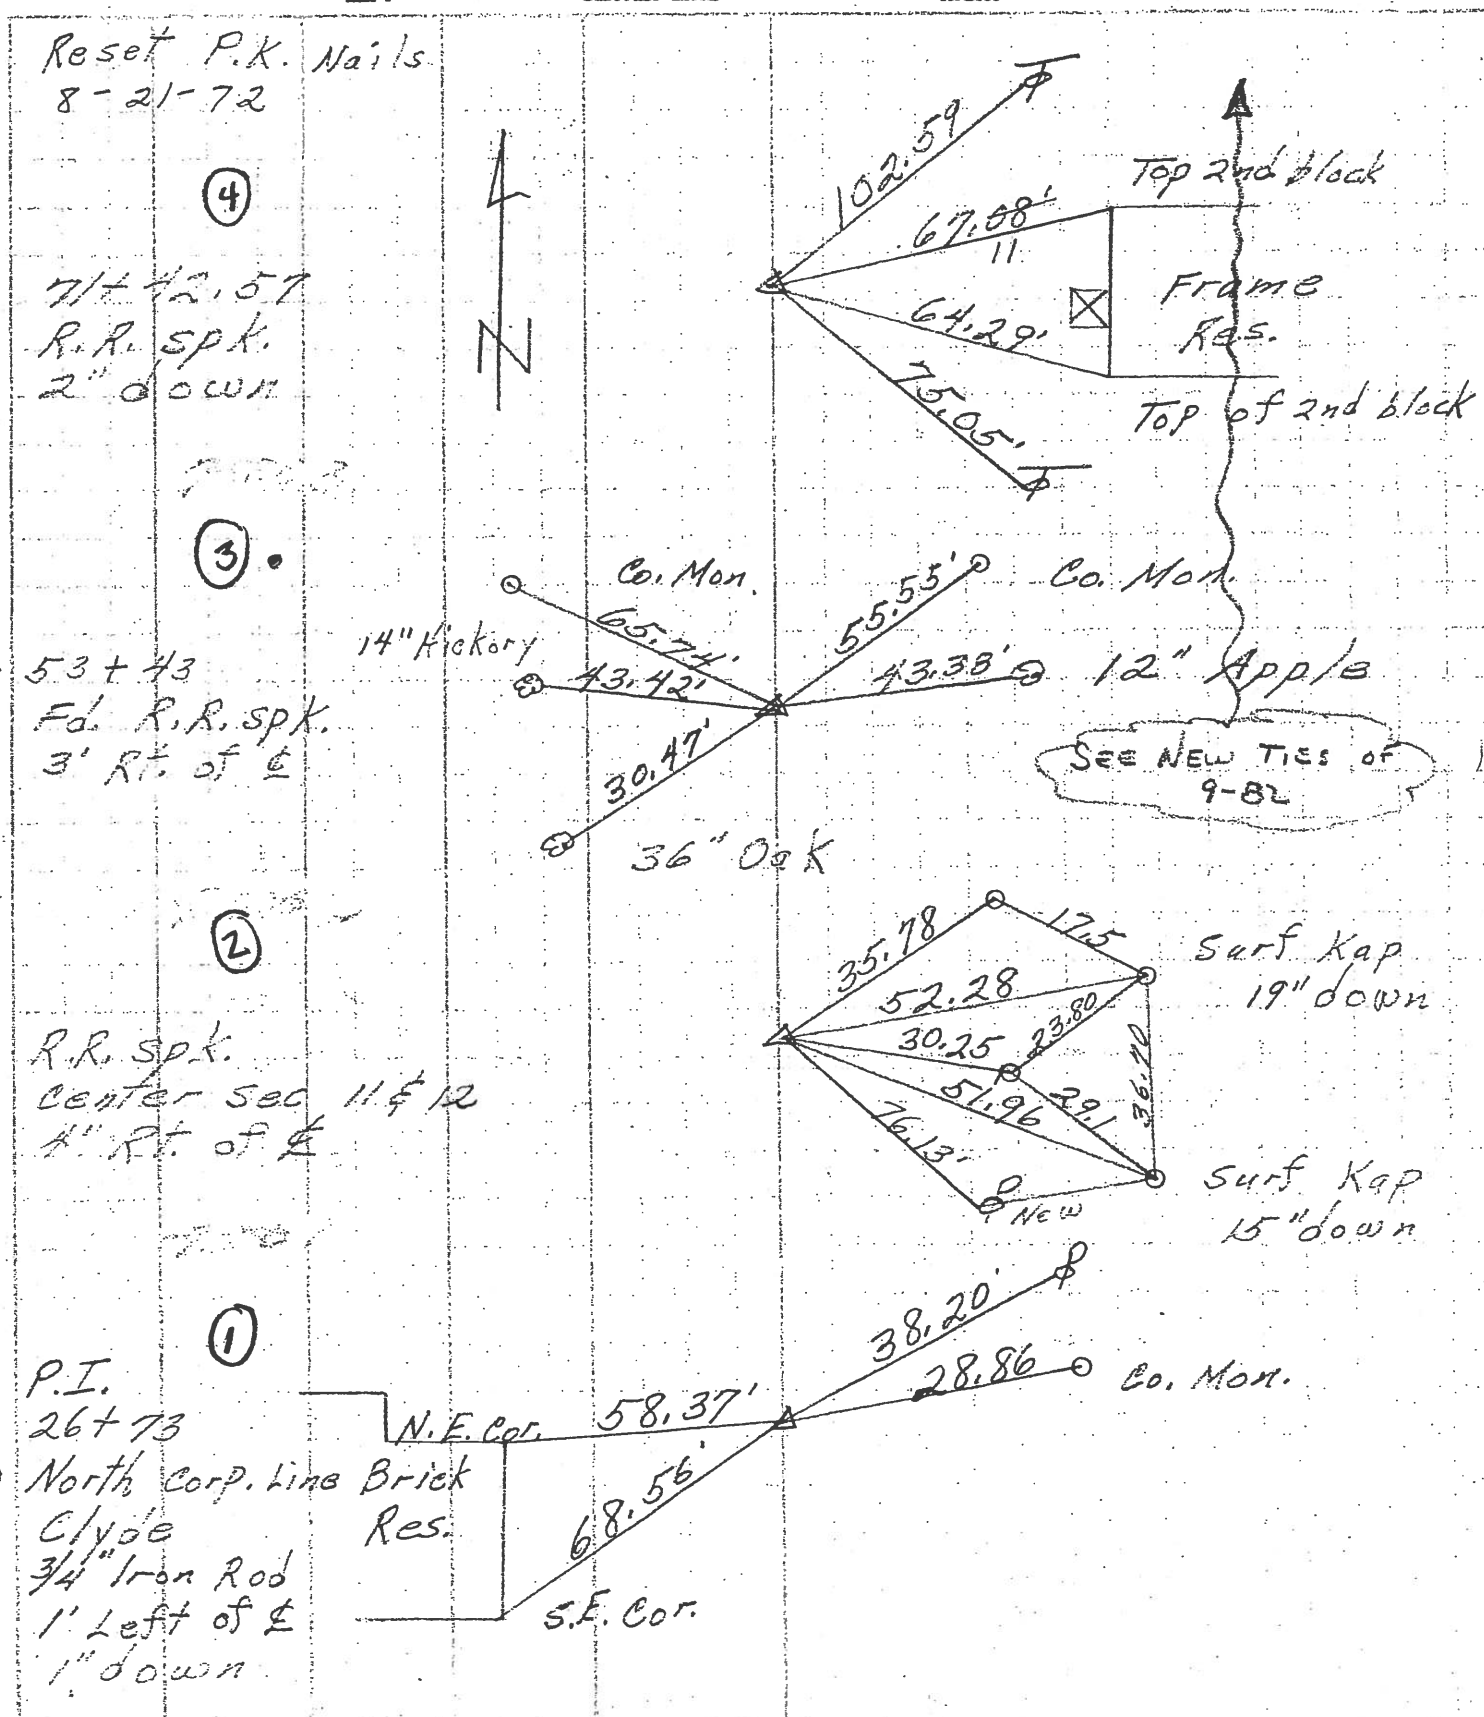 Reset P.K. Nails
8-21-72
4
71+42.57
R.R. spk.
2" down
N
102.59
67.08'
11
64.29'
75.05'
Top 2nd block
Frame
Res.
Top of 2nd block
3
53+43
Fd. R.R. spk.
3' Rt. of ℄
Co. Mon.
65.74'
14" Hickory
43.42'
30.47'
36" Oak
55.55'
Co. Mon.
43.33'
12" Apple
SEE NEW TIES OF
9-82
2
R.R. spk.
Center Sec 11 & 12
4" Rt. of ℄
35.78
17.5
52.28
30.25
23.80
51.96
29.1
36.70
76.13'
NEW
Surf Kap
19" down
Surf Kap
15" down
1
P.I.
26+73
North Corp. Line
Clyde
3/4" Iron Rod
1' Left of ℄
1" down
Brick
Res.
N.E. Cor.
58.37'
68.56'
S.E. Cor.
38.20'
28.86
Co. Mon.